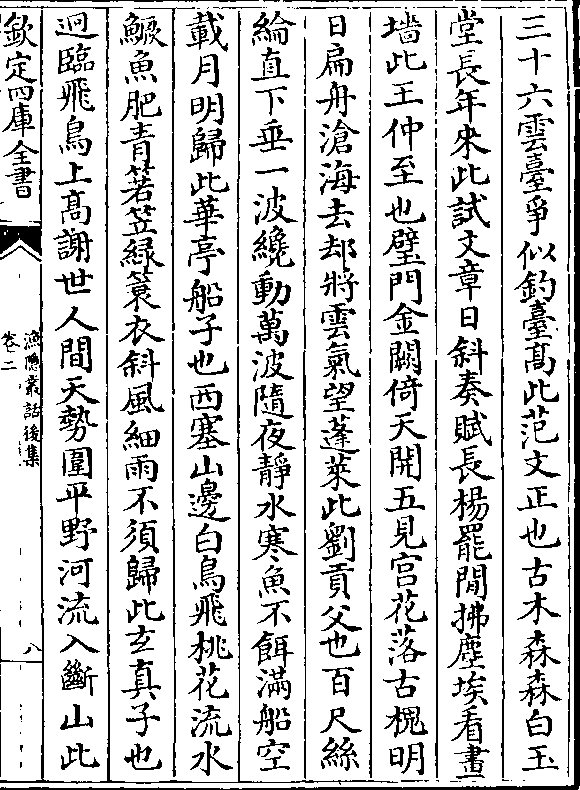 三十六雲臺爭似釣臺髙此范文正也古木森森白玉
堂長年來此試文章日斜奏賦長楊罷閒拂塵埃看畫
墻此王仲至也壁門金闕倚天開五見宫花落古槐明
日扁舟滄海去却將雲氣望蓬萊此劉貢父也百尺絲
綸直下垂一波纔動萬波隨夜靜水寒魚不餌滿船空
載月明歸此華亭船子也西塞山邊白鳥飛桃花流水
鱖魚肥青箬笠緑簑衣斜風細雨不須歸此玄真子也
迥臨飛鳥上髙謝世人間天勢圍平野河流入斷山此
欽定四庫全書
漁隱叢話後集
卷二
八